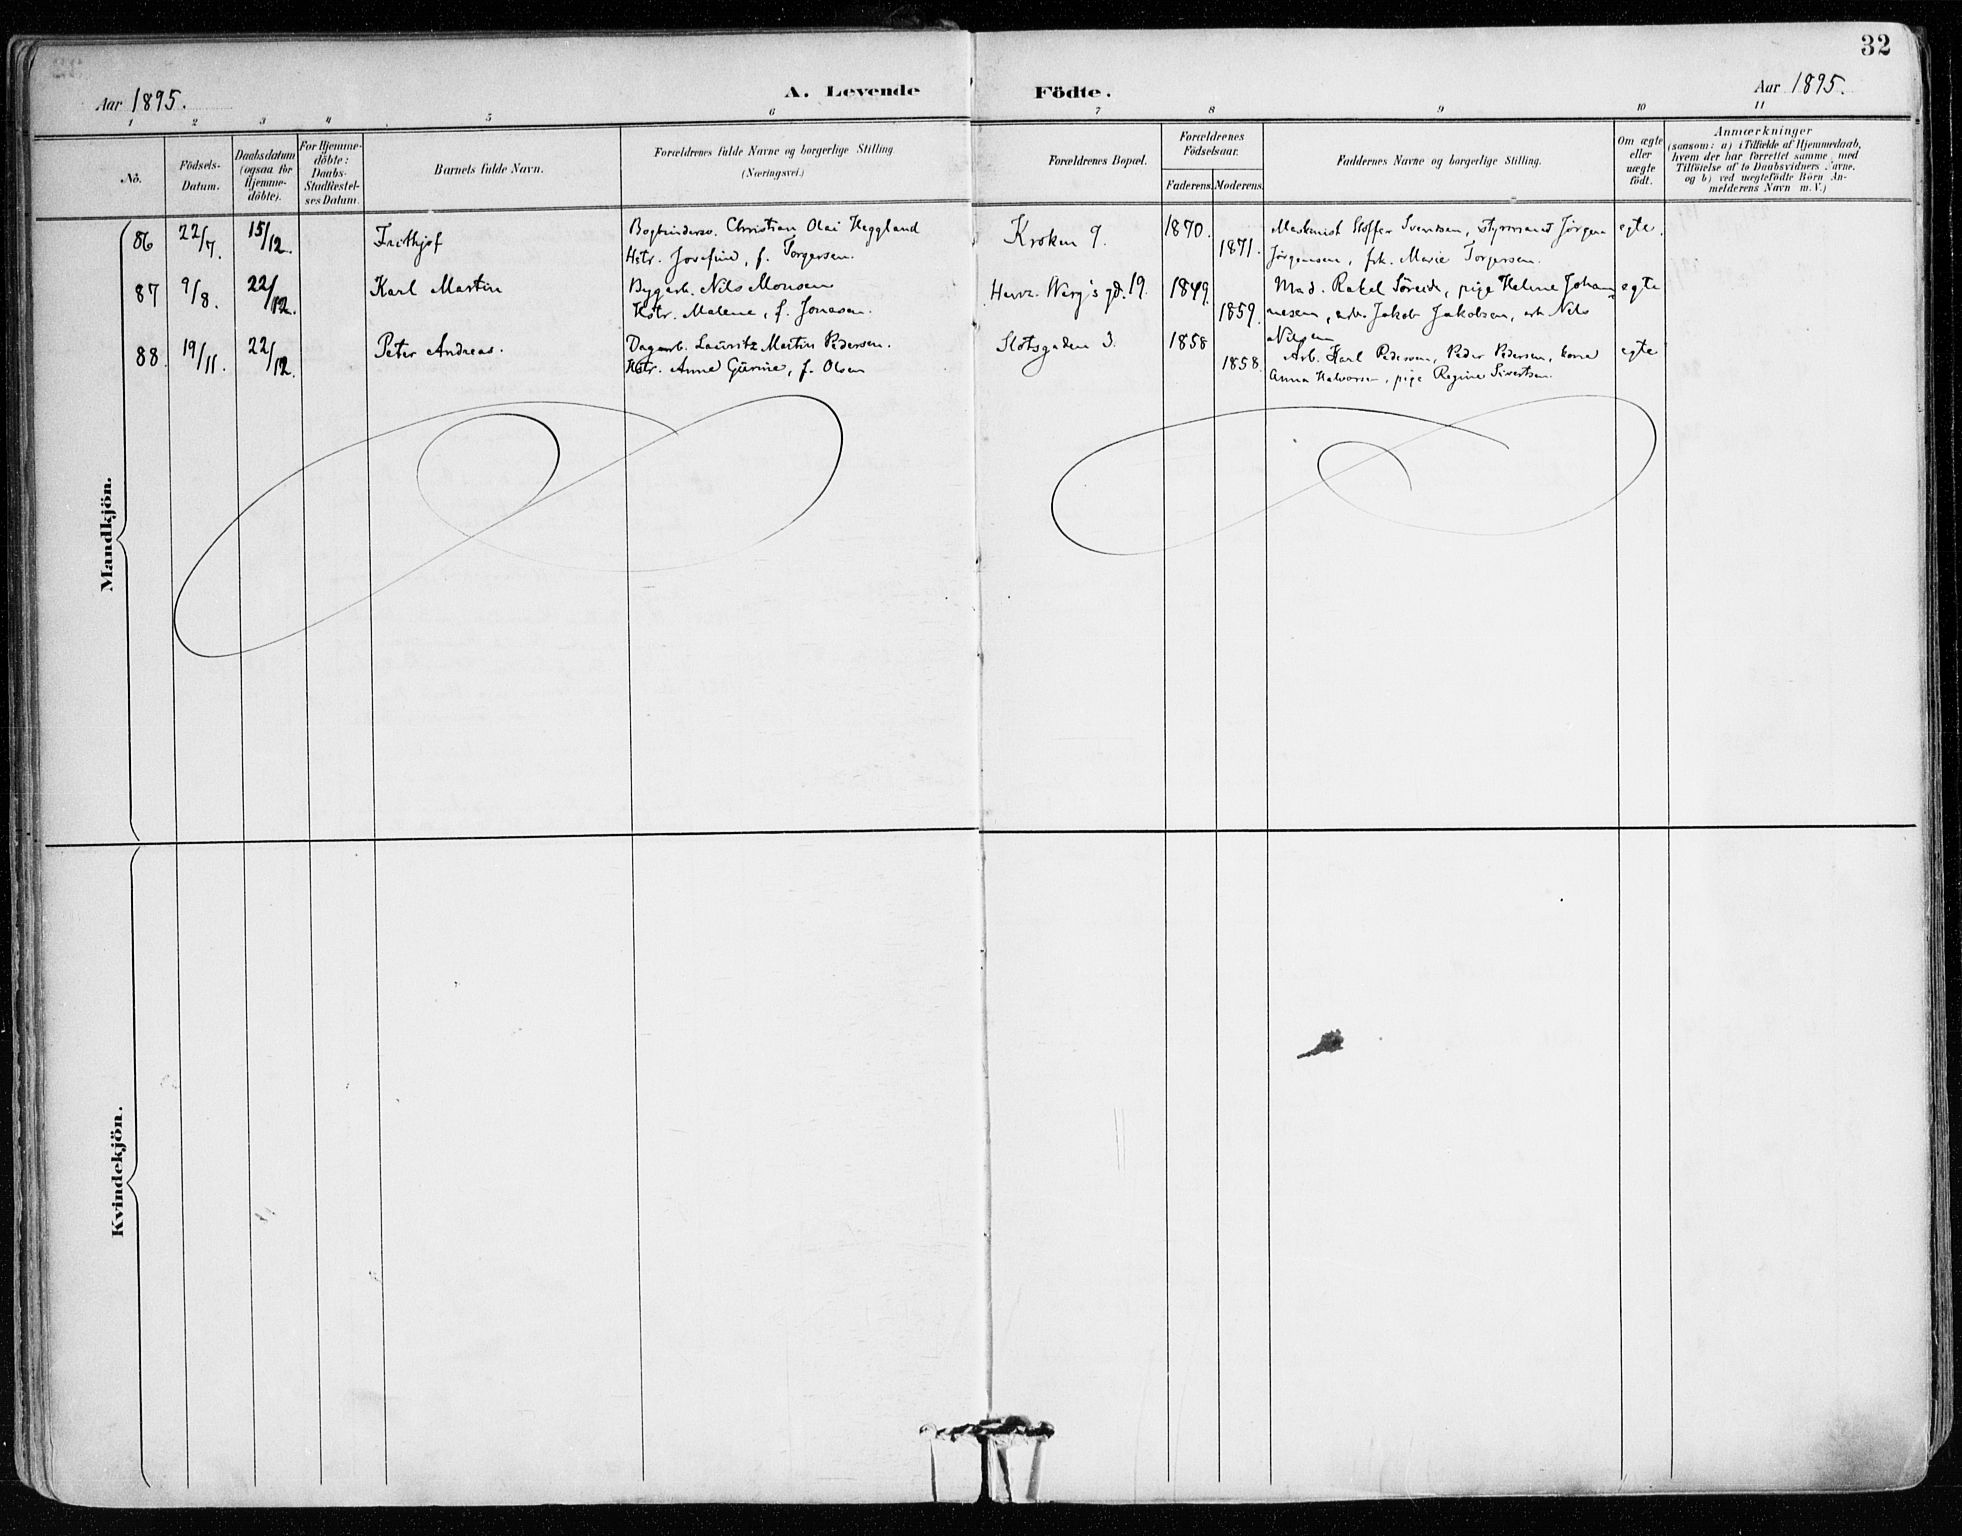 32
Aar 1895.
A. Levende Födte.
Aar 1895.
1 2 3 4 5 6 7 8 9 10 11
No.
Födsels-
Datum.
Daabsdatum
(ogsaa for
Hjemme-
döbte).
For Hjemme-
döbte:
Daabs-
Stadfæstel-
ses Datum.
Barnets fulde Navn.
Forældrenes fulde Navne og borgerlige Stilling
(Næringsvei.)
Forældrenes Bopæl.
Forældrenes
Födselsaar.
Faderens. Moderens.
Faddernes Navne og borgerlige Stilling.
Om ægte
eller
uægte
födt.
Anmærkninger
(saasom: a) i Tilfælde af Hjemmedaab,
hvem der har forrettet samme, med
Tilföielse af to Daabsvidners Navne.
og b) ved uægtefödte Börn An-
melderens Navn m. V.)
Mandkjön.
86 22/7. 15/12. Frithjof
Bogbindersv. Christian Olai Heggland
Hstr. Josefine, f. Torgersen.
Kroken 9. 1870. 1871.
Maskinist Stoffer Svendsen, styrmand Jörgen
Jörgensen, frk. Marie Torgersen.
egte.
87 9/8. 22/12. Karl Martin
Bygarb. Nils Monsen
Hstr. Malene, f. Jonasen.
gd. 19. 1849. 1859.
Mad. Rakel Söreide, pige Helene Johan-
nesen, arb. Jakob Jakobsen, arb Nils
Nilsen
egte
88. 19/11. 22/12. Peter Andreas.
Dagarb. Lauritz Martin Pedersen.
Hstr. Anne Gurine, f. Olsen
Slotsgaden 3. 1858 1858.
Arb. Karl Pedersen, Peder Pedersen, kone
Anna Halvorsen, pige Regine Sivertsen.
egte
Kvindekjön.